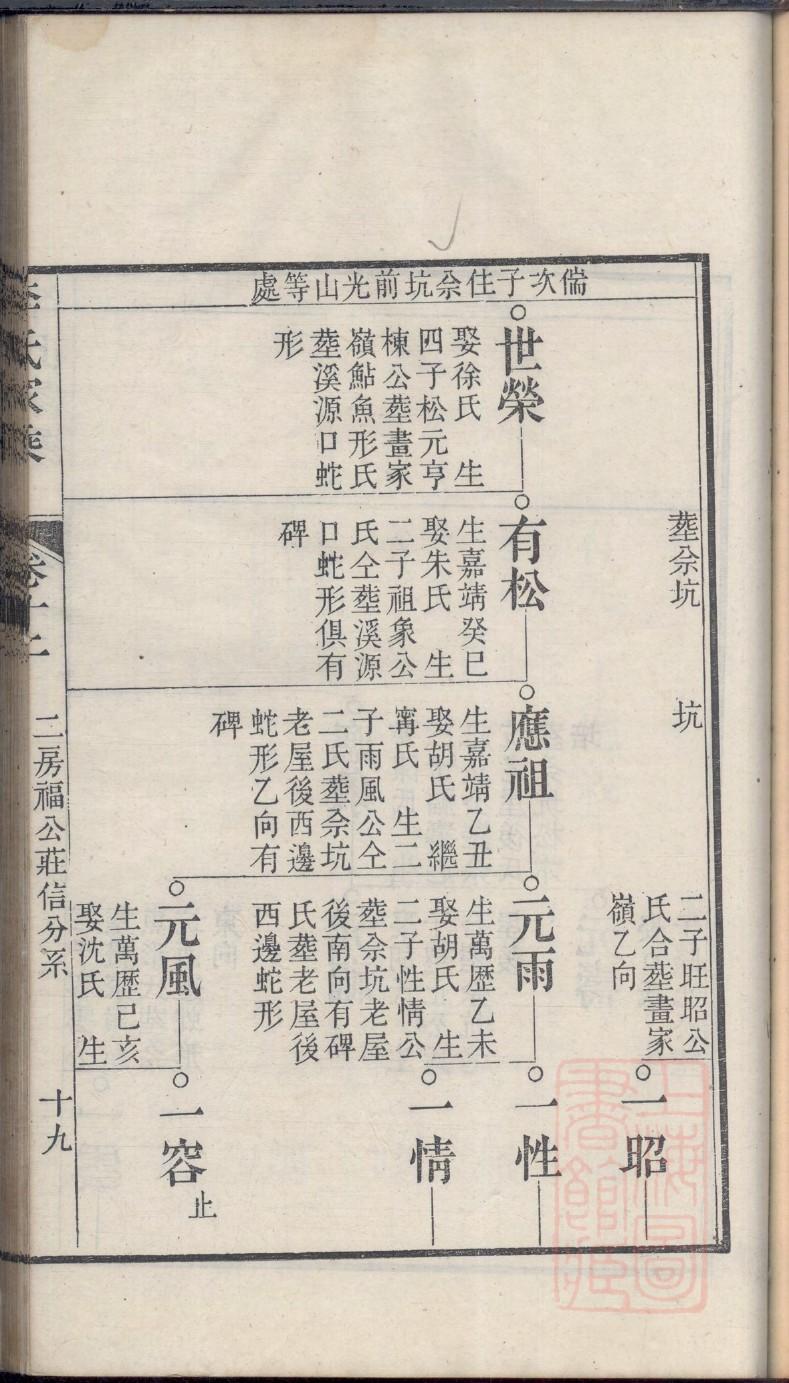 偹次子住佘坑前光山等處
塟佘坑
坑
二子旺昭公
氏合塟畫家
嶺乙向
一昭
世榮
娶徐氏 生
四子松元亨
棟公塟畫家
嶺鮎魚形氏
塟溪源口蛇
形
有松
生嘉靖癸巳
娶朱氏 生
二子祖象公
氏仝塟溪源
口蛇形俱有
碑
應祖
生嘉靖乙丑
娶胡氏 繼
甯氏 生二
子雨風公仝
二氏塟佘坑
老屋後西邊
蛇形乙向有
碑
元雨
生萬歴乙未
娶胡氏 生
二子性情公
塟佘坑老屋
後南向有碑
氏塟老屋後
西邊蛇形
一性
一情
元風
生萬歴己亥
娶沈氏 生
一容
止
李氏家乘
卷十二
二房福公莊信分系
十九
上海圖
書館藏